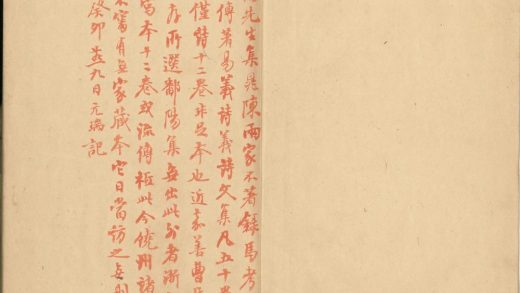 先生集晁陳兩家不著錄馬考
傳著易義詩義詩文集凡五十卷
僅詩十二卷非足本也近嘉善曹
存所選鄱陽集無出此外者浙
寫本十二卷或流傳秪此今饒州諸
甯有無家藏本它日當訪之
癸卯燕九日元瑞記